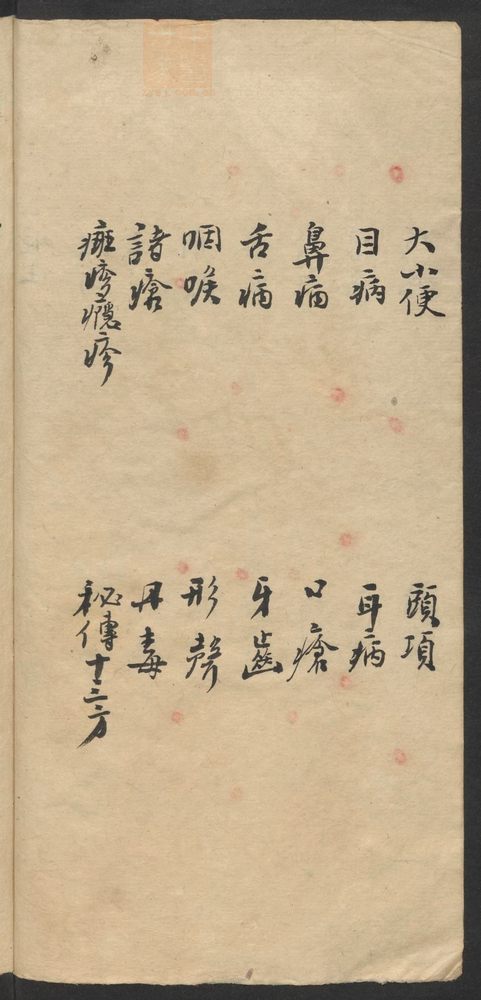 大小便 頭項
目病 耳病
鼻病 口瘡
舌病 牙齒
咽喉 形聲
諸瘡 丹毒
斑疹癮疹 秘傳十三方